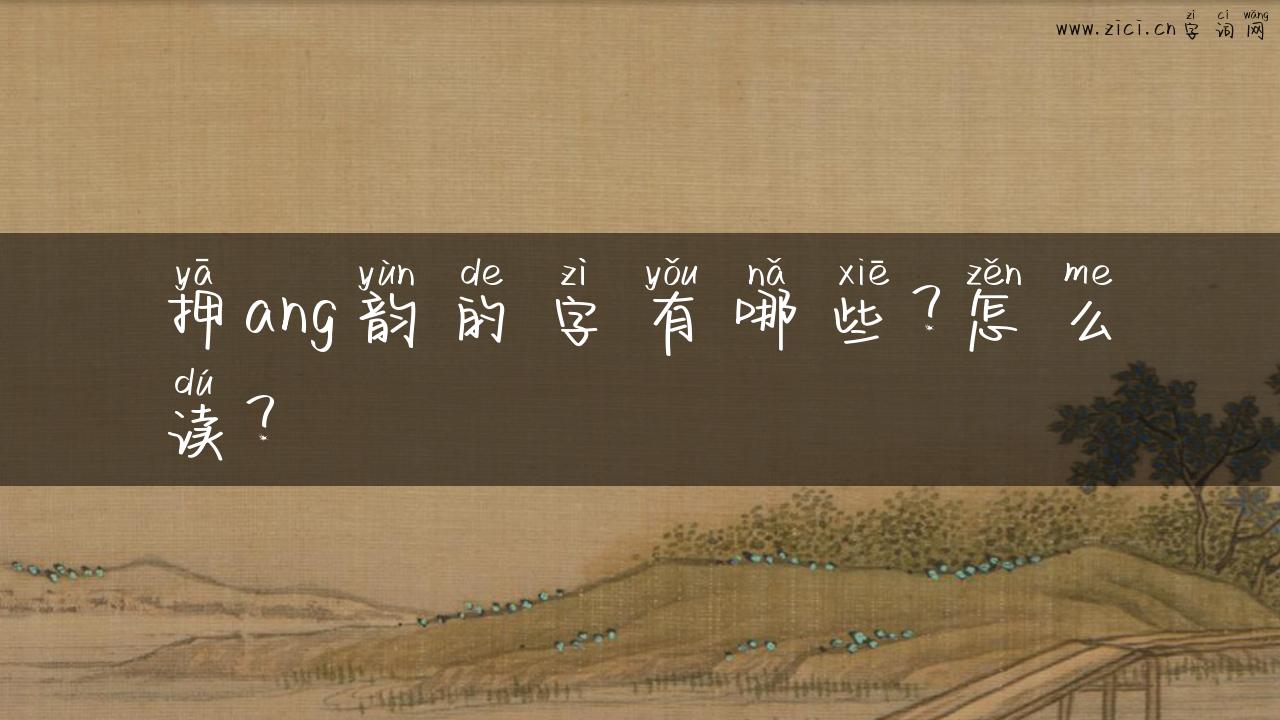 zì cí wǎng
www.zici.cn字词网
yā yùn de zì yǒu nǎ xiē zěn me
押ang韵的字有哪些？怎么
dú
读？